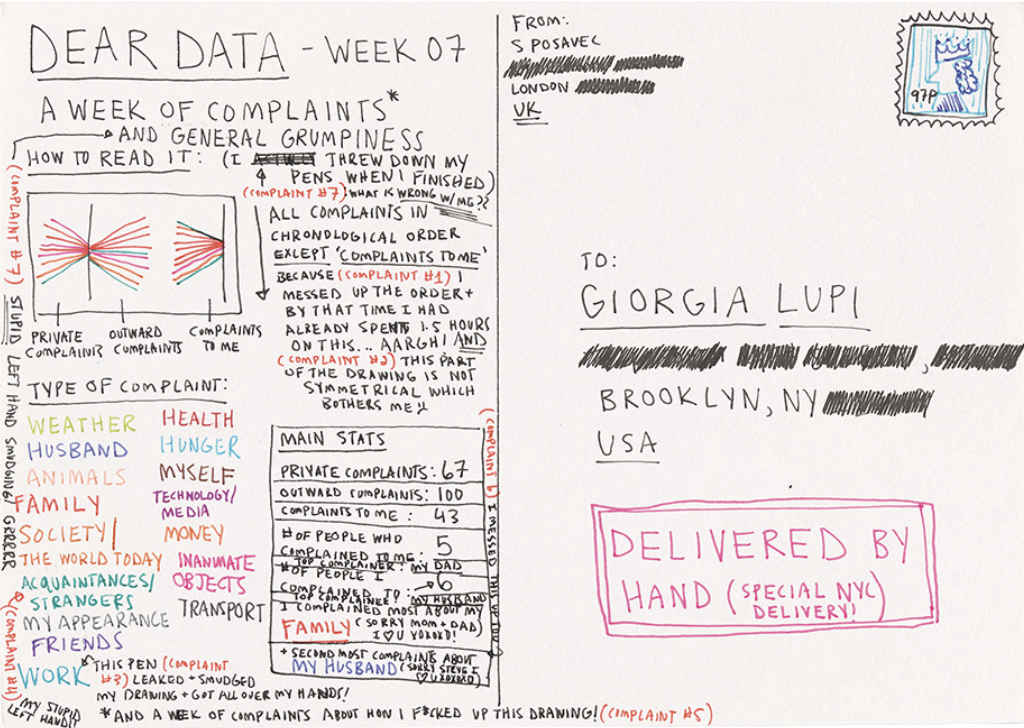 DEAR DATA - WEEK 07
A WEEK OF COMPLAINTS*
AND GENERAL GRUMPINESS
HOW TO READ IT: (I THREW DOWN MY
PENS WHEN I FINISHED)
(COMPLAINT #7) WHAT IS WRONG W/ME??
ALL COMPLAINTS IN
CHRONOLOGICAL ORDER
EXCEPT 'COMPLAINTS TO ME'
BECAUSE (COMPLAINT #1) I
MESSED UP THE ORDER +
BY THAT TIME I HAD
ALREADY SPENT 1.5 HOURS
ON THIS... AARGH! AND
(COMPLAINT #2) THIS PART
OF THE DRAWING IS NOT
SYMMETRICAL WHICH
BOTHERS ME!!
PRIVATE
COMPLAINTS
OUTWARD
COMPLAINTS
COMPLAINTS
TO ME
TYPE OF COMPLAINT:
WEATHER
HUSBAND
ANIMALS
FAMILY
SOCIETY/
THE WORLD TODAY
ACQUAINTANCES/
STRANGERS
MY APPEARANCE
FRIENDS
WORK
HEALTH
HUNGER
MYSELF
TECHNOLOGY/
MEDIA
MONEY
INANIMATE
OBJECTS
TRANSPORT
* THIS PEN (COMPLAINT
#3) LEAKED + SMUDGED
MY DRAWING + GOT ALL OVER MY HANDS!
MAIN STATS
PRIVATE COMPLAINTS: 67
OUTWARD COMPLAINTS: 100
COMPLAINTS TO ME: 43
# OF PEOPLE WHO
COMPLAINED TO ME: 5
TOP COMPLAINER: MY DAD
# OF PEOPLE I
COMPLAINED TO: 6
TOP COMPLAINEE: MY HUSBAND
I COMPLAINED MOST ABOUT MY
FAMILY (SORRY MOM + DAD)
I ♡ U XOXOXO!
+ SECOND MOST COMPLAINTS ABOUT
MY HUSBAND (SORRY STEVE I
♡ U XOXOXO)
(COMPLAINT 6) I MESSED THIS UP TOO
(COMPLAINT #7)
STUPID LEFT HAND SMUDGING! GRRRRR
(COMPLAINT #4)
MY STUPID
LEFT HAND!!
*AND A WEEK OF COMPLAINTS ABOUT HOW I F*CKED UP THIS DRAWING! (COMPLAINT #5)
FROM:
S POSAVEC
LONDON
UK
97P
TO:
GIORGIA LUPI
BROOKLYN, NY
USA
DELIVERED BY
HAND (SPECIAL NYC
DELIVERY!)